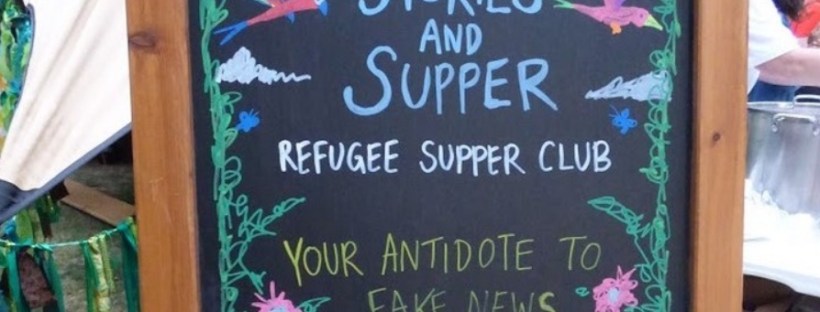 STORIES
AND
SUPPER
REFUGEE SUPPER CLUB
YOUR ANTIDOTE TO
FAKE NEWS